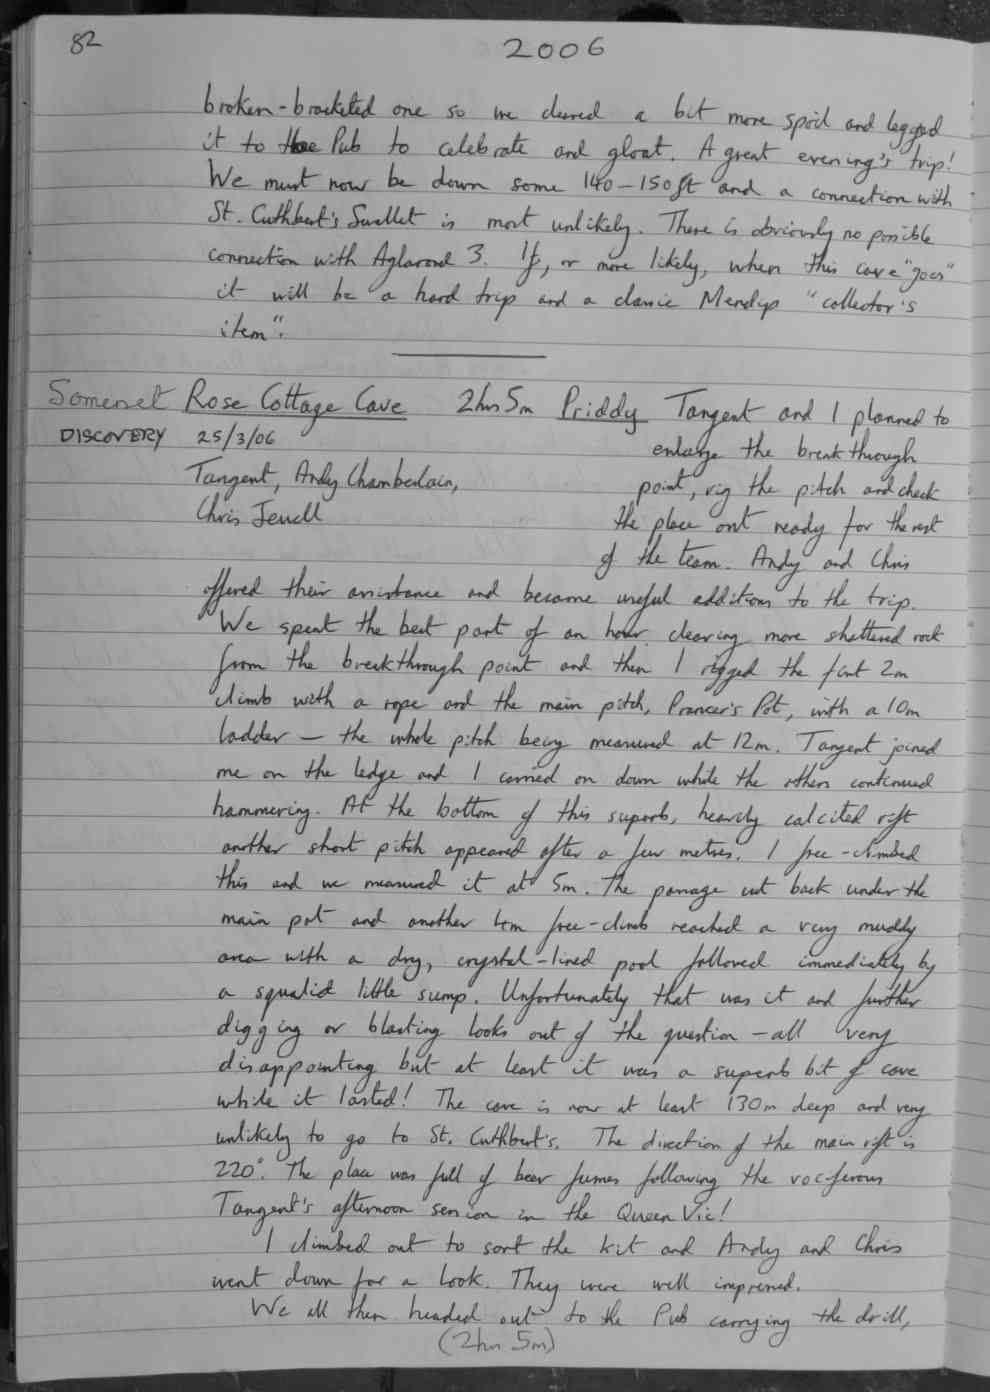 82
2006
broken-bracketed one so we cleared a bit more spoil and legged
it to the Pub to celebrate and gloat. A great evening's trip!
We must now be down some 140-150ft and a connection with
St. Cuthbert's Swallet is most unlikely. There is obviously no possible
connection with Aglarond 3. If, or more likely, when this cave "goes"
it will be a hard trip and a classic Mendip "collector's
item".
Somerset Rose Cottage Cave 2hrs 5m Priddy Tangent and I planned to
DISCOVERY 25/3/06 enlarge the breakthrough
Tangent, Andy Chamberlain, point, rig the pitch and check
Chris Jewell the place out ready for the rest
of the team. Andy and Chris
offered their assistance and became useful additions to the trip.
We spent the best part of an hour clearing more shattered rock
from the breakthrough point and then I rigged the first 2m
climb with a rope and the main pitch, Prancer's Pot, with a 10m
ladder - the whole pitch being measured at 12m. Tangent joined
me on the ledge and I carried on down while the others continued
hammering. At the bottom of this superb, heavily calcited rift
another short pitch appeared after a few metres. I free-climbed
this and we measured it at 5m. The passage cut back under the
main pot and another 4m free-climb reached a very muddy
area with a dry, crystal-lined pool followed immediately by
a squalid little sump. Unfortunately that was it and further
digging or blasting looks out of the question - all very
disappointing but at least it was a superb bit of cave
while it lasted! The cave is now at least 130m deep and very
unlikely to go to St. Cuthbert's. The direction of the main rift is
220°. The place was full of beer fumes following the vociferous
Tangent's afternoon session in the Queen Vic!
I climbed out to sort the kit and Andy and Chris
went down for a look. They were well impressed.
We all then headed out to the Pub carrying the drill,
(2hrs 5m)